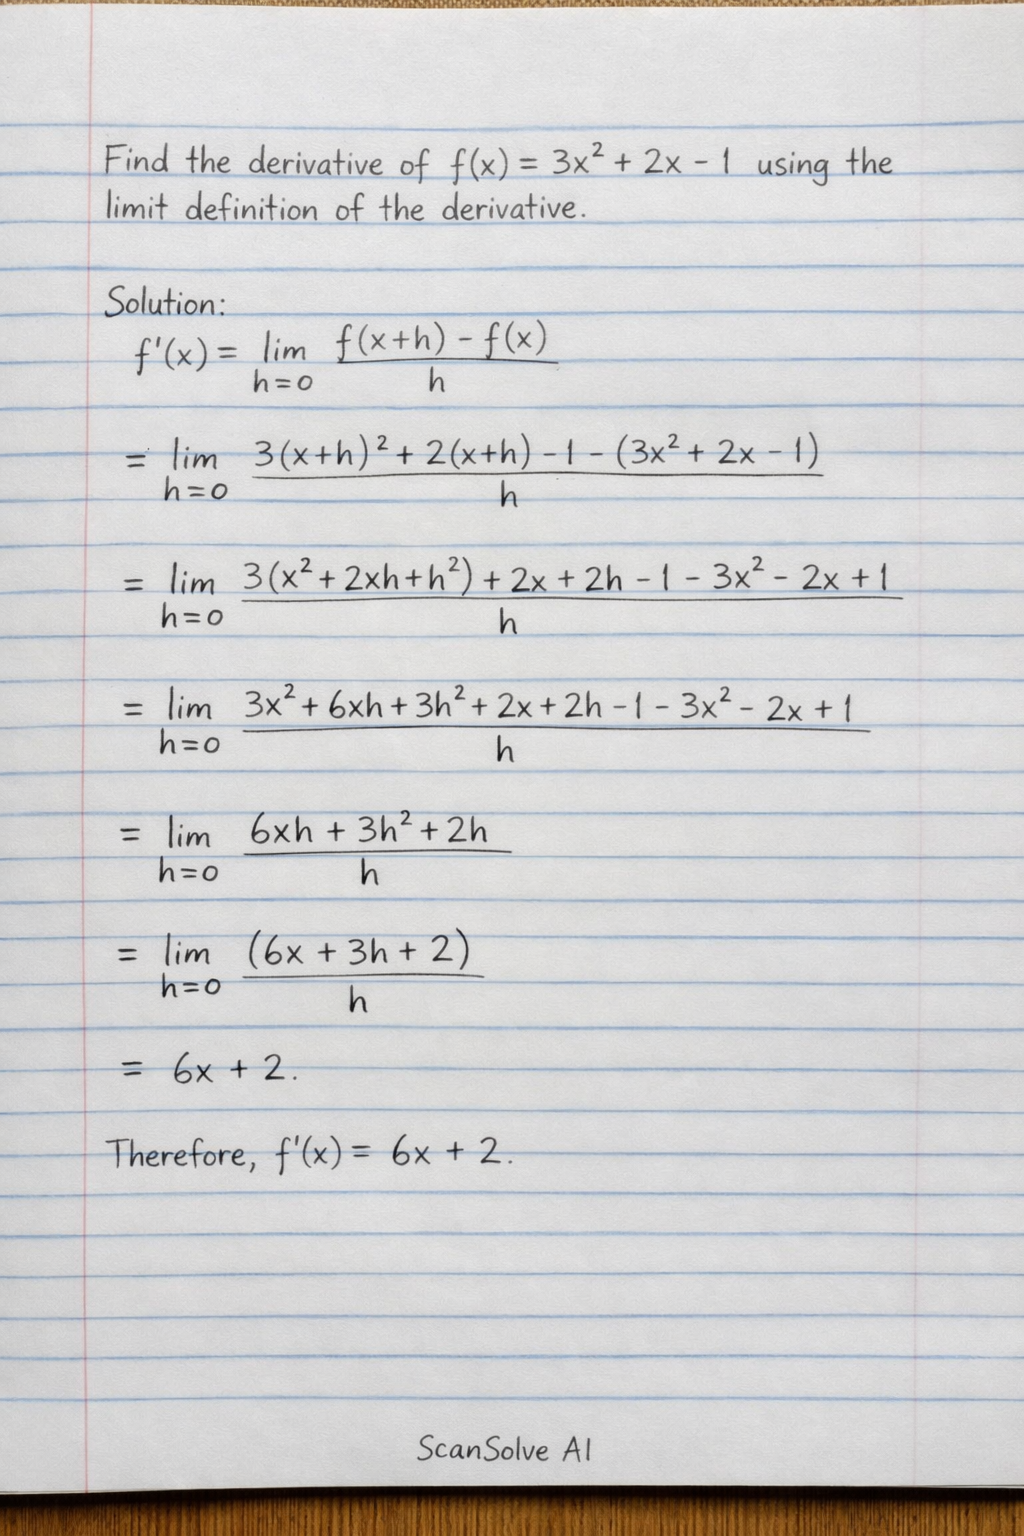 Find the derivative of f(x) = 3x² + 2x - 1 using the
limit definition of the derivative.
Solution:
f'(x) = lim h=0 f(x+h) - f(x) / h
= lim h=0 3(x+h)² + 2(x+h) - 1 - (3x² + 2x - 1) / h
= lim h=0 3(x² + 2xh + h²) + 2x + 2h - 1 - 3x² - 2x + 1 / h
= lim h=0 3x² + 6xh + 3h² + 2x + 2h - 1 - 3x² - 2x + 1 / h
= lim h=0 6xh + 3h² + 2h / h
= lim h=0 (6x + 3h + 2) / h
= 6x + 2.
Therefore, f'(x) = 6x + 2.
ScanSolve AI